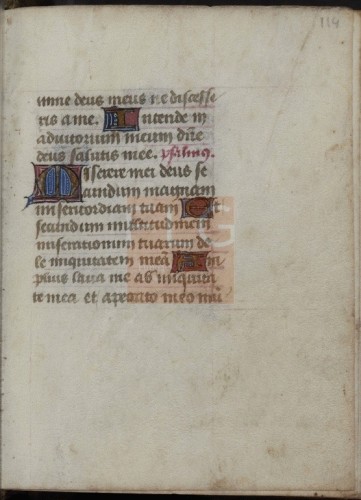 114
mine deus meus ne discesse
ris a me. Intende in
adiutorium meum dñe
deus salutis mee. psalmus.
Miserere mei deus se
cundum magnam
misericordiam tuam Et
secundum multitudinem
miserationum tuarum de
le iniquitatem meã Am
plius laua me ab iniquita
te mea et a peccato meo mũ